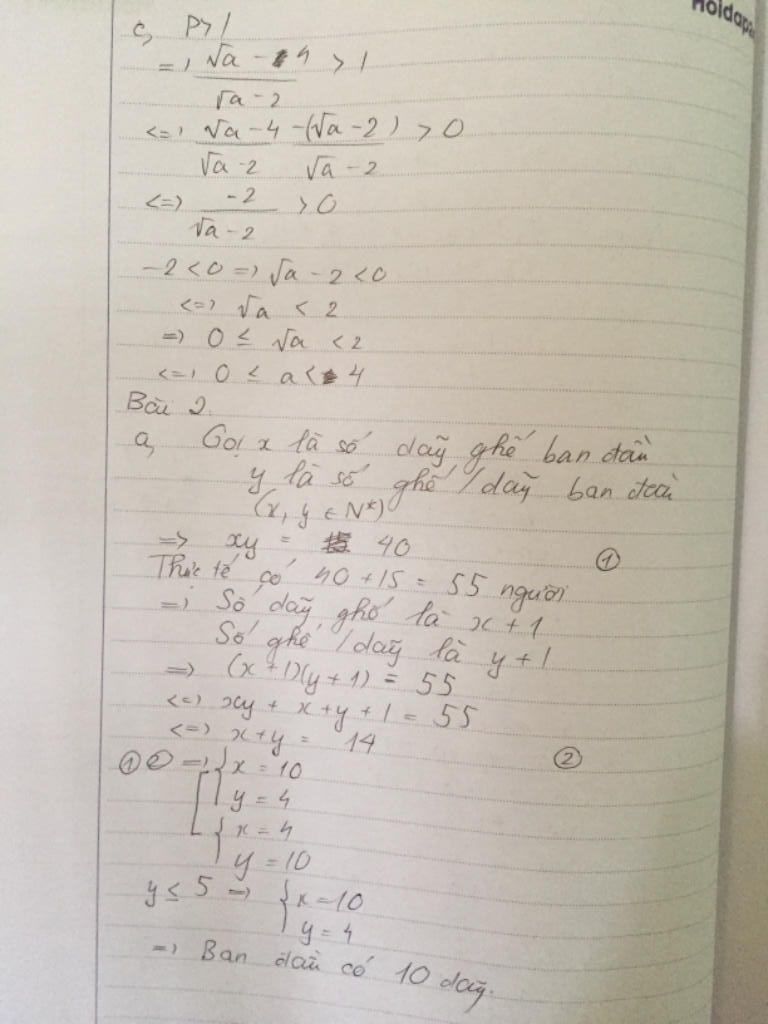 Hoidap
c, P>1
=> (√a - 4)/(√a - 2) > 1
<=> (√a - 4)/(√a - 2) - (√a - 2)/(√a - 2) > 0
<=> -2/(√a - 2) > 0
-2 < 0 => √a - 2 < 0
<=> √a < 2
=> 0 ≤ √a < 2
<=> 0 ≤ a < 4
Bài 2.
a, Gọi x là số dãy ghế ban đầu
y là số ghế /dãy ban đầu
(x, y ∈ N*)
=> xy = 40 ①
Thực tế có 40 + 15 = 55 người
=> Số dãy ghế là x + 1
Số ghế /dãy là y + 1
=> (x + 1)(y + 1) = 55
<=> xy + x + y + 1 = 55
<=> x + y = 14 ②
① ② => [ { x = 10
y = 4
{ x = 4
y = 10
y ≤ 5 => { x = 10
y = 4
=> Ban đầu có 10 dãy.